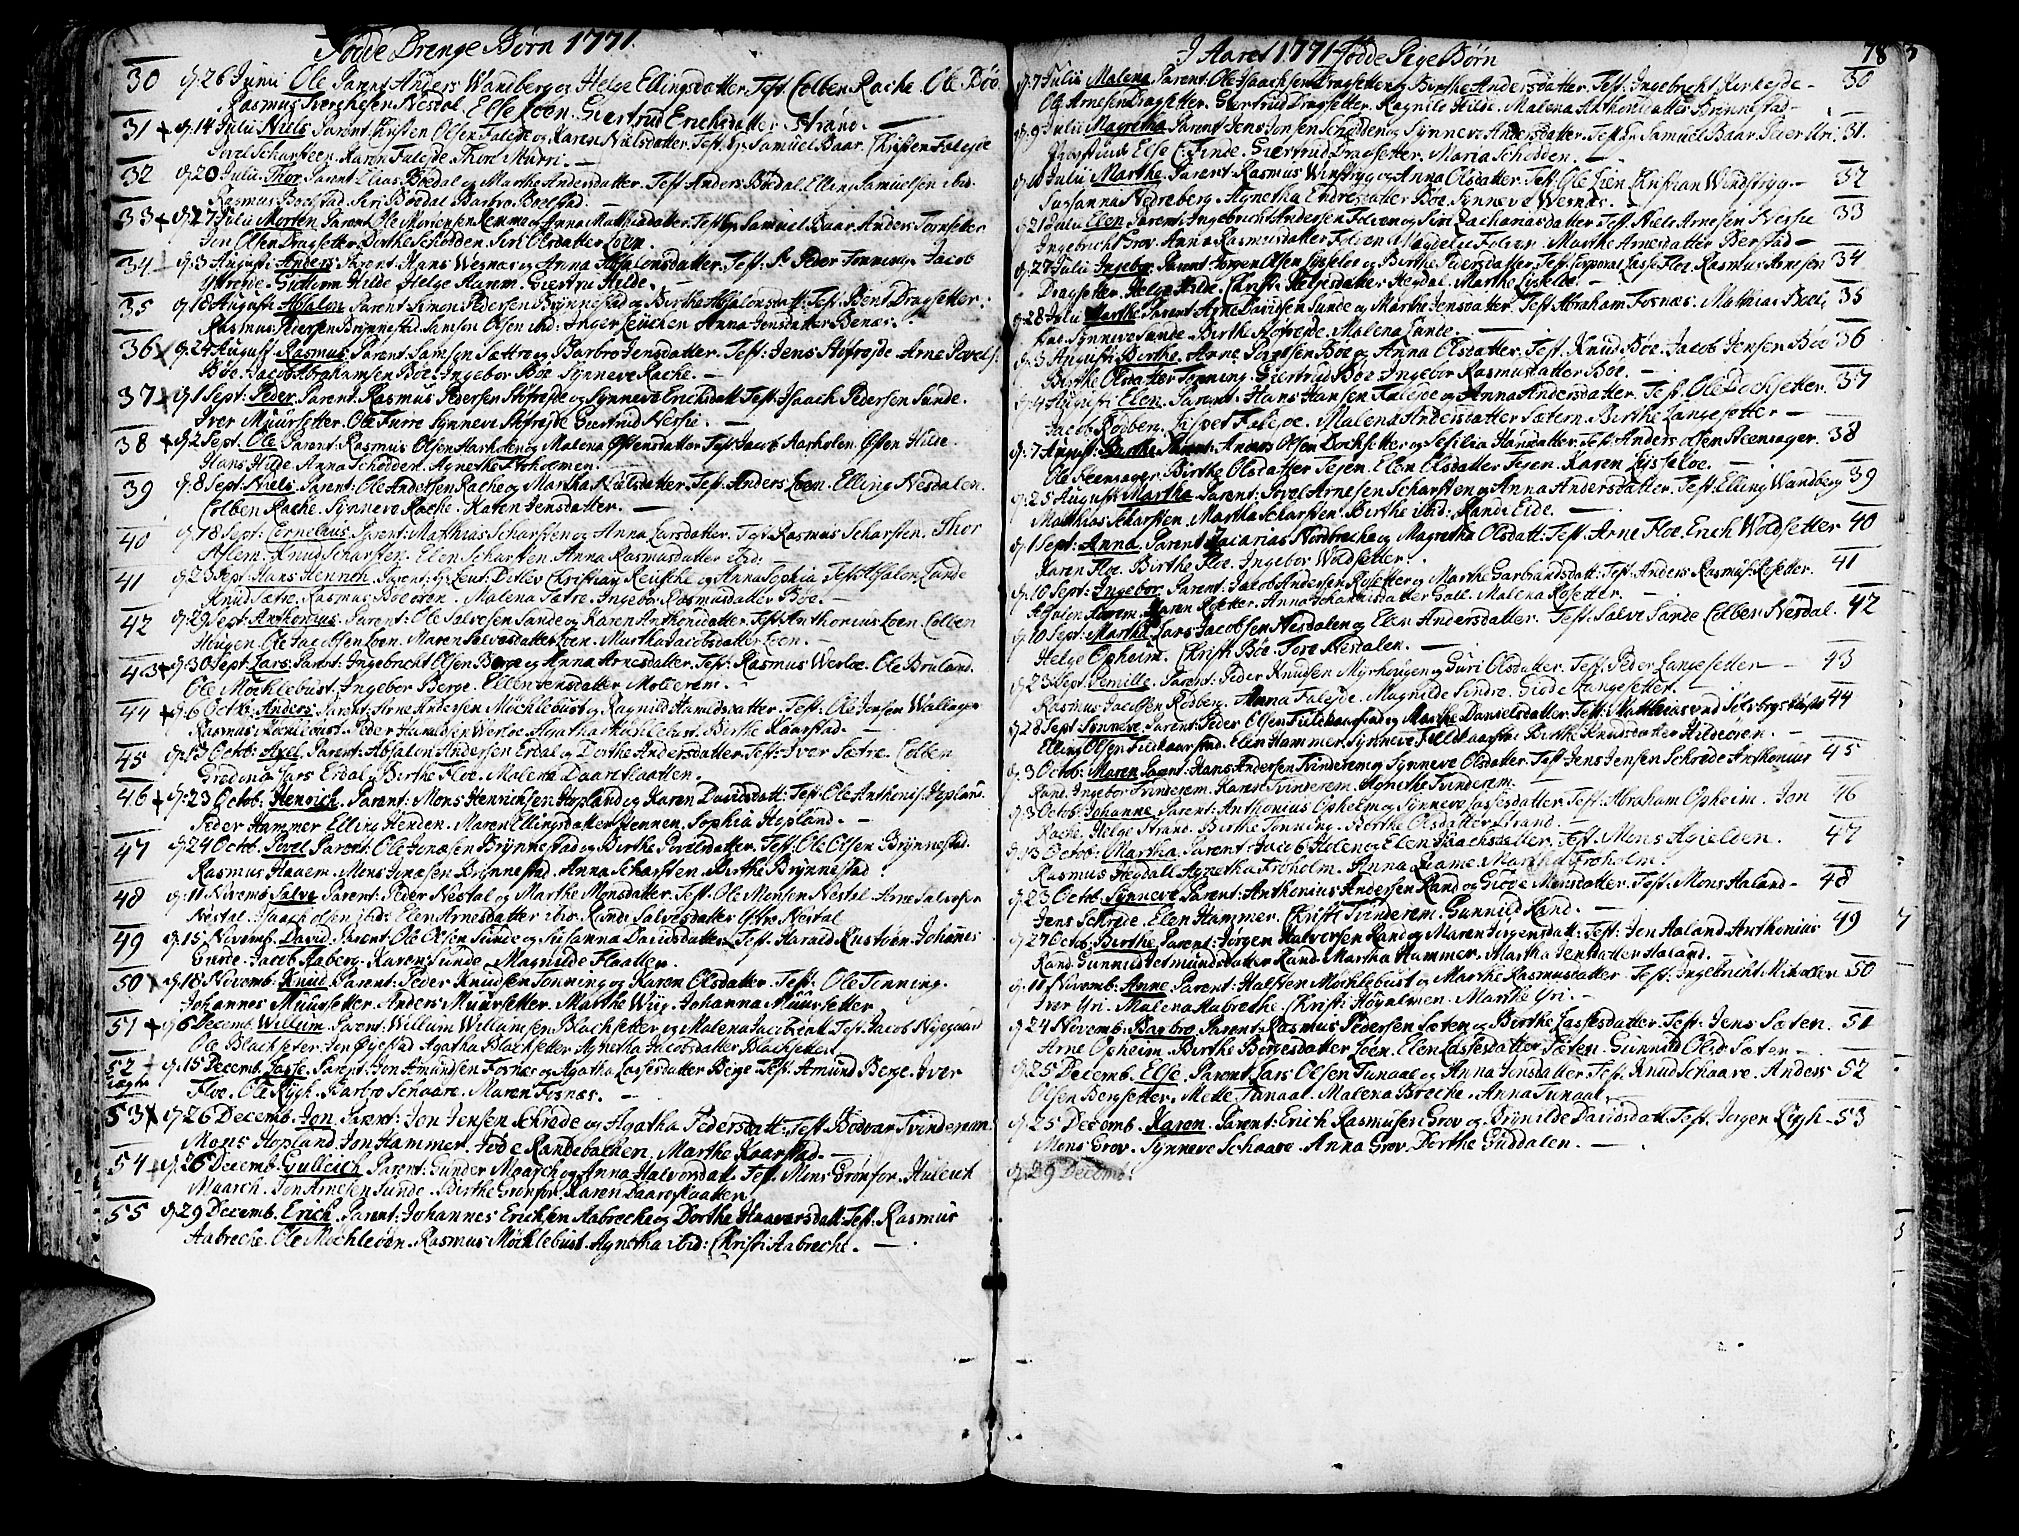 Fødde Drenge Børn 1771.
30 d. 26 Junii Ole Parent Anders Wandberg og Helge Ellingsdatter. Test: Colben Rache. Ole Bøe.
Rasmus Nestal. Else Loen. Giertrud Erichsdatter Strand.
31 d. 14 Julii Niels. Parent: Christen Olsen Falejde og Karen Nielsdatter. Test: Hr. Samuel Baar. Christen Falejde
Povel Scharsteen. Karen Falejde. Thore Muri. —
32 d. 20 Julii. Thor. Parent: Elias Bødal og Marthe Andersdatter. Test: Anders Bødal. Elling Samuelsen ibid.
Rasmus Boelstad. Siri Bødal. Barbro Boelstad. —
33 d. 27 Julii Morten. Parent: Ole Mortensen og Anna Mathisdatter. Test: Hr. Samuel Baar. Anders Tornsetter
Jon Olsen Dragsetter. Berthe Schødden. Siri Olsdatter Loen.
34 d. 3 Augusti Anders. Parent: Hans Wesnæs og Anna Absalonsdatter. Test: Sr. Peder Tonning. Jacob
Yttrene. Guttorm Hilde. Helge Aarem. Giertru Hilde. —
35 d. 18 Augusti Absalon. Parent: Simon Pedersen Brynnestad og Birthe Absalonsdatt: Test: Bent Dragsetter.
Rasmus Iversen Brynnestad. Samson Olsen ibid: Inger Leuchen. Anna Jensdatter Benæs.
36 d. 24 August: Rasmus. Parent: Samson Sættre og Barbro Jensdatter. Test: Jens Støfrejde. Arne Povels:
Bøe. Jacob Abrahamsen Bøe. Ingebor Bøe. Synneve Rache. —
37 d. 1 Sept: Peder. Parent: Rasmus Pedersen Støfrejde og Synneve Erichsdatt: Test: Isaach Pedersen Sunde.
Iver Muursetter. Ole Furre. Synneve Støfrejde. Giertrud Nessie. —
38 d. 2 Sept: Ole. Parent: Rasmus Olsen og Malena Olsdatter. Test: Jacob Aarholen. Olsen Hilde.
Hans Hilde. Anna Schødden. Agnethe Floholmen.
39 d. 8 Sept: Niels. Parent: Ole Andersen Rache og Martha Nielsdatter. Test: Anders Loen. Elling Nesdalen.
Colben Rache. Synneve Rache. Karen Jensdatter. —
40 d. 18 Sept: Cornelius. Parent: Mathias Scharsten og Anna Larsdatter. Test: Rasmus Scharsten. Thor
Aslem. Knud Scharsten. Elen Scharsten. Anna Rasmusdatter ibid:
41 d. 23 Sept: Hans Henrich. Parent: Hr. Leut: Detlev Christian Reusche og Anna Sophia. Test: Absalon Sande
Knud Sætre. Rasmus Bøeøren. Malena Sætre. Ingebor Rasmusdatter Bøe. —
42 d. 29 Sept: Anthonius. Parent: Ole Salvesen Sande og Karen Anthonidatter. Test: Anthonius Loen. Colben
Hougen. Ole Jacobsen Loen. Maren Salvesdatter Loen. Martha Jacobsdatter Loen. —
43 d. 30 Sept: Lars. Parent: Ingebricht Olsen Berge og Anna Arnesdatter. Test: Rasmus Werloe. Ole Bruland.
Ole Mochlebust. Ingebor Berge. Ellen Jensdatter. —
44 d. 6 Octb: Anders. Parent: Arne Andersen Mochlebust og Ragnild Haraldsdatter. Test: Ole Jensen
Rasmus Mochlebust. Peder Haraldsen Werloe. Agatha Mochlebust. Birthe Kaarstad. —
45 d. 13 Octob: Axel. Parent: Absalon Andersen Erdal og Dorthe Andersdatter. Test: Iver Sætre. Colben
Lars Erdal. Birthe Floe. Malena Daareflaatten.
46 d. 23 Octob: Henrich. Parent: Mons Henrichsen Hopland og Karen Davidsdatt: Test: Ole Anthonis: Hopland.
Peder Hammer. Elling Henden. Maren Ellingsdatter Hennen. Sophia Hopland. —
47 d. 24 Octb. Povel. Parent: Ole Jonæsen Brynnestad og Birthe Povelsdatter. Test: Ole Olsen Brynnestad.
Rasmus Haaem. Mons Jonesen Brynnestad. Anna Scharsten. Birthe Brynnestad.
48 d. 11 Novemb. Salve. Parent: Peder Nestal og Marthe Monsdatter. Test: Ole Monsen Nestal. Arne Salvesen
Nestal. Isaach Olsen ibid: Elen Arnesdatter ibid. Rande Salvesdatter Yttre Nestal.
49 d. 15 Novemb. David. Parent: Ole Olsen Sunde og Susanna Davidsdatter. Test: Harald Kustøen. Johannes
Jacob Aaberg. Karen Sunde. Magnilde Flaatten.
50 d. 18 Novemb. Knud. Parent: Peder Knudsen Tonning og Karen Olsdatter. Test: Ole Tonning.
Johannes Muursetter. Anders Muursetter. Marthe Wiig. Johanna Muursetter.
51 d. 6 Decemb. Willum. Parent: Willum Willumsen Blachsetter og Malena Jacobsdatt: Test: Jacob Nygaard
Ole Blachsetter. Jon Øyestad. Agatha Blachsetter. Agnetha Jacobsdatter Blachsetter.
52 d. 15 Decemb. Lasse. Parent: Jon Amundsen Fosnæs og Agatha Lassesdatter Berge. Test: Amund Berge. Iver
Floe. Ole Rygh. Barbro Schaare. Maren Fosnæs. —
53 d. 26 Decemb. Jon. Parent: Jon Jensen Schrede og Agatha Pedersdatt: Test: Bødvar Tvinderum
Mons Hopland. Jon Hammer. Marthe Kaarstad. —
54 d. 26 Decemb. Gullech. Parent: Gunder Maarch og Anna Halvorsdatt: Test: Mons Grønfor. Hullech
Maarch. Jon Arnesen Sunde. Birthe Grønfor. Karen Daareflaatten.
55 d. 29 Decemb. Erich. Parent: Johannes Erichsen Aabreche og Dorthe Haaversdatt: Test: Rasmus
Aabreche. Ole Mochleøen. Rasmus Mochlebust. Agnetha ibid: Christi Aabreche. —
I Aaret 1771. Fødde Pige Børn
78
d. 7 Julii Malena. Parent: Ole Isaachsen Dragsetter og Birthe Andersdatter. Test: Ingebricht Kirkejde — 30
Ole Arnesen Dragsetter. Giertrud Dragsetter. Ragnild Hilde. Malena Anthonidatter Brynnestad —
d. 9 Julii Magretha. Parent: Jens Jonsen Schødden og Synneve Andersdatter. Test: Hr. Samuel Baar. Iver Uri 31.
Else Tvinde. Giertrud Dragsetter. Maria Schødden. —
d. 10 Julii Marthe. Parent: Rasmus Winstryg og Anna Olsdatter. Test: Ole Loen. Christian Windstryg — 32
Susanna Nedreberg. Agnetha Endresdatter Bøe. Synneve Wesnæs. —
d. 21 Julii Elen. Parent: Ingebricht Andersen Folven og Siri Zachariasdatter. Test: Niels Arnesen Hessie 33
Ingebricht Grov. Anna Rasmusdatter Folven. Magdele Folven. Marthe Arnesdatter Berstad —
d. 27 Julii Ingebor. Parent: Jørgen Olsen Lysseloe og Birthe Pedersdatter. Test: Corporal Lasse Floe. Rasmus Arnesen 34
Dragsetter. Helge Hilde. Christi Helgesdatter Hegdal. Marthe Lyseloe. —
d. 28 Julii Marthe. Parent: Arne Davidsen Sunde og Marthe Jensdatter. Test: Abraham Fosnæs. Mathias Boel- 35
stad. Synneve Sunde. Birthe. Malena Sunde. —
d. 3 Augusti Birthe. Arne Povelsen Bøe og Anna Olsdatter. Test: Knud Bøe. Jacob Jensen Bøe 36
Birthe Olsdatter Tonning. Giertrud Bøe. Ingebor Rasmusdatter Bøe. —
d. 4 Augusti Elen. Parent: Hans Hansen Falejde og Anna Andersdatter. Test: Ole Dochsetter. 37
Jacob Rødberg. Lisbet Falejde. Malena Andersdatter Sætern. Birthe Langesetter —
d. 7 August: Birthe. Parent: Anders Olsen Dochsetter og Sesilia Hansdatter. Test: Anders Olsen Steensager. 38
Ole Steensager. Birthe Olsdatter Tejen. Elen Olsdatter Tejen. Karen Lysseloe. —
d. 25 Augusti Martha. Parent: Povel Arnesen Scharsten og Anna Andersdatter. Test: Elling Wandberg 39
Matthias Scharsten. Martha Scharsten. Birthe ibid: Rande Eide. —
d. 1 Sept: Anna. Parent: Zacarias Nordbreche og Magretha Olsdatt: Test: Arne Floe. Erich Woldsetter 40
Karen Floe. Birthe Floe. Ingebor Woldsetter.
d. 10 Sept: Ingebor. Parent: Jacob Andersen Rosetter og Marthe Garbrandsdatt: Test: Anders Rasmus: Rosetter. 41
Absalon Aarem. Maren Rosetter. Anna Johannisdatter. Malena Rosetter. —
d. 10 Sept: Martha. Lars Jacobsen Nesdalen og Elen Andersdatter. Test: Salve Sande. Colben Nesdal. 42
Helge Opheim. Christi Bøe. Tore Nesdalen. —
d. 23 Sept: Pernille. Parent: Peder Knudsen Myrhougen og Guri Olsdatter. Test: Peder Langesetter — 43
Rasmus Jacobsen Rødberg. Anna Falejde. Magnilde Tvinde. Giøde Langesetter. —
d. 28 Sept: Synneve. Parent: Peder Olsen Fieldkaarstad og Marthe Danielsdatter. Test: Matthias 44
Elling Olsen Fieldkaarstad. Elen Hammer. Synneve Fieldkaarstad. Birthe Knudsdatter Hildeøren. —
d. 3 Octob: Maren. Parent: Hans Andersen Tvinderem og Synneve Olsdatter. Test: Jens Jensen Schrede. Anthonius 45
Rand. Ingebor Tvinderem. Karen Tvinderem. Agnethe Tvinderem.
d. 3 Octob: Johanne. Parent: Anthonius Opheim og Synneve Lassesdatter. Test: Abraham Opheim. Jon 46
Rache. Helge Strand. Birthe Tonning. Birthe Olsdatter Strand. —
d. 13 Octob: Martha. Parent: Jacob Holen og Elen Isaachsdatter. Test: Mons Agieldøen. 47
Rasmus Hegdal. Agnetha Froholm. Anna Lame. Martha Froholm.
d. 23 Octb. Synneve. Parent: Anthonius Andersen Rand og Giøde Monsdatter. Test: Mons Aaland — 48
Jens Schrede. Elen Hammer. Christi Tvinderem. Gunnild Rand. —
d. 27 Octob: Birthe. Parent: Jørgen Halvorsen Rand og Maren Jørgensdatt: Test: Jon Aaland. Anthonius 49
Rand. Gunnild Jetmundsdatter Rand. Martha Hammer. Martha Jensdatter Aaland. —
d. 11 Novemb: Anne. Parent: Halsten Mochlebust og Marthe Rasmusdatter. Test: Ingebricht 50
Iver Yri. Malena Aabreche. Christi Høgalmen. Marthe Yri. —
d. 24 Novemb. Barbro. Parent: Rasmus Pedersen Sæten og Birthe Lassesdatter. Test: Jens Sæten. 51
Arne Opheim. Birthe Bottesdatter Loen. Elen Lassesdatter Sæten. Gunnild Olsd: Sæten —
d. 25 Decemb. Else. Parent: Lars Olsen Tunaal og Anna Jonsdatter. Test: Knud Schaare. Anders 52
Olsen Bergsetter. Mette Tunaal. Malena Breche. Anna Tunaal.
d. 25 Decemb. Karen. Parent: Erich Rasmusen Grov og Brynilde Davidsdatt: Test: Jørgen Rygh — 53
Mons Grov. Synneve Schaare. Anna Grov. Dorthe Guddalen. —
d. 29 Decemb: